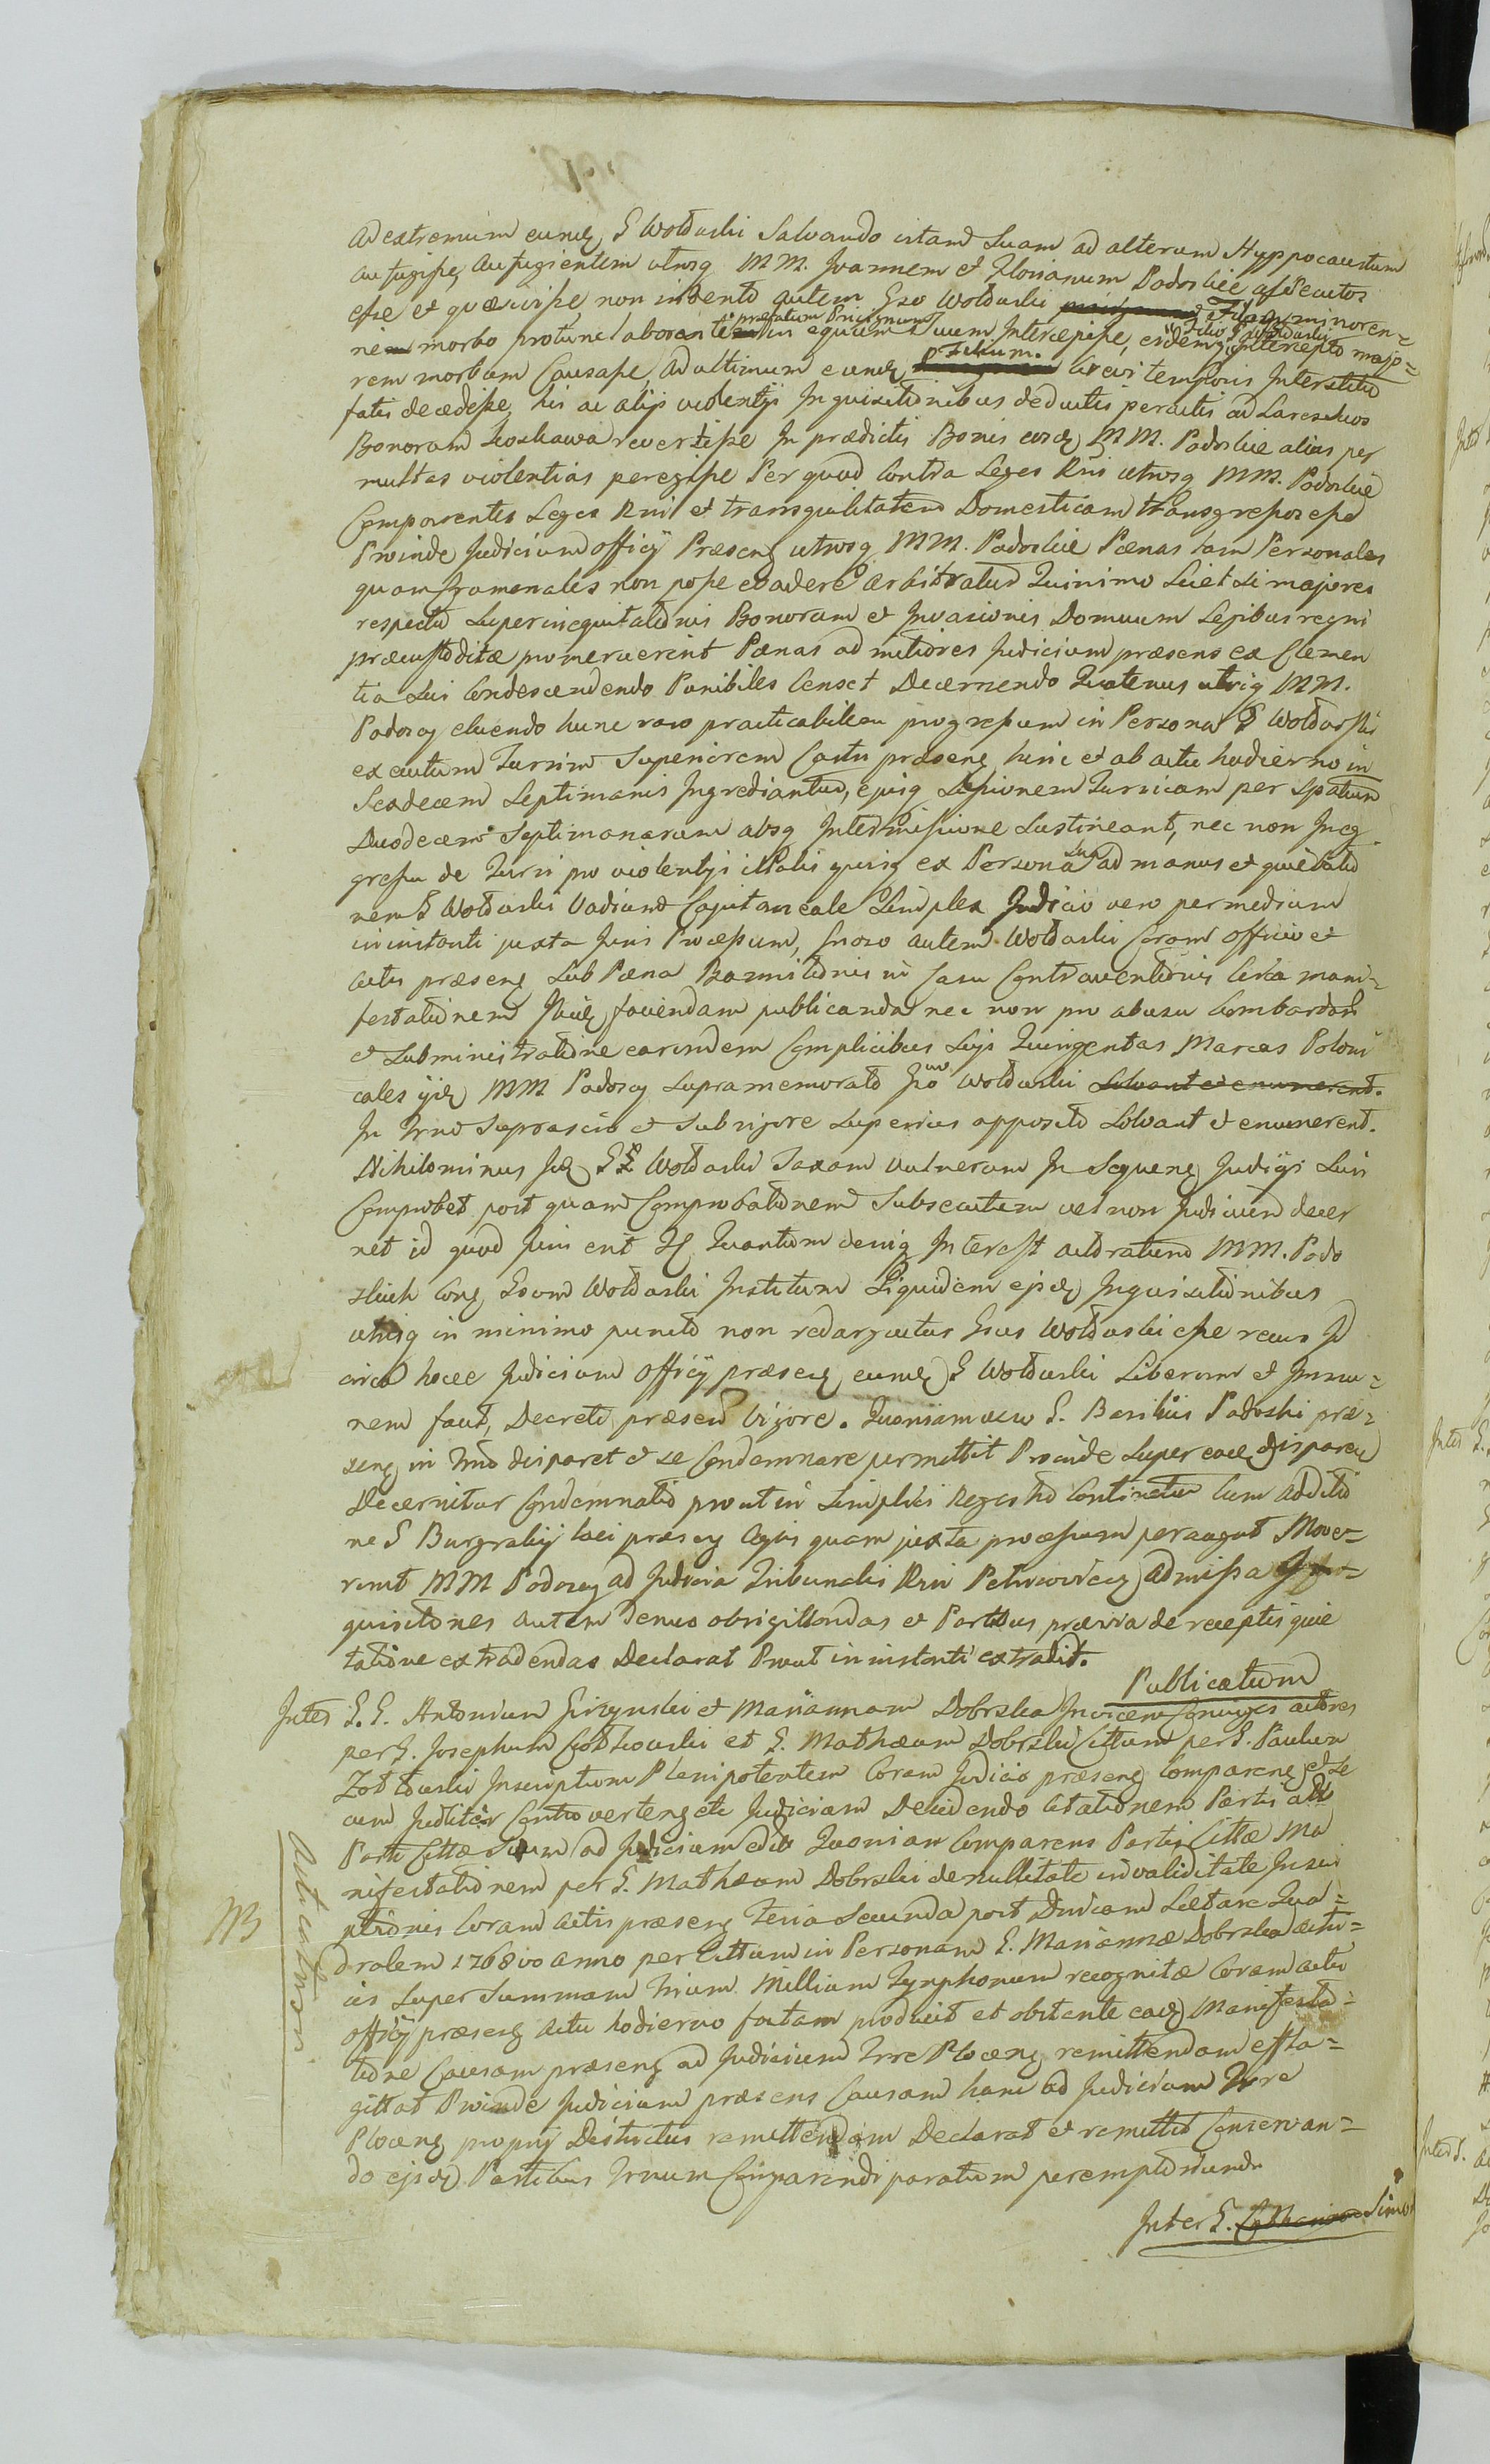 ad extremum eundq G Wołdaski Salvando vitam Suam ad alterum Hyppocaustum
aufugisse, aufugientem utrosq MM. Joannem et Florianum Podoskie assecutos
esse et quæsivisse, non invento autem Gso Wołdaski Filium minoren=
nem morbo protunc laborantem præfatum Privignum in equum Suum Intercepisse, eidemq Filio G Wołdaski intercepto majo=
rem morbum Causasse, ad ultimum eundq Filium brevi temporis Interstitio
fatis decedesse, his ac alijs violentijs Inquisitionibus deductis peractis ad Lares suos
Bonorum revertisse In prædictis Bonis eosdq MM. Podoskie alias per
multas violentias peregisse Per quod Contra Leges Rni utrosq MM. Podoskie
Comparentes Leges Rni et tranquilitatem Domesticam transgressos esse
Proinde Judicium officij Præsens utrosq MM. Podoskie Pœnas tam Personales
quam non posse evadere arbitratur Quinimo Licet Si majores
respectu Superinequitationis Bonorum et Invasionis Domuum Legibus regni
præcustoditæ promeruerint Pœnas ad mitiores Judicium præsens ex Clemen
tia Sui Condescendendo Punibiles Censet Decernendo Quatenus utriq MM.
Podoscy eluendo hunc raro practicabilem progressum in Persona G Wołdaski
executum Turrim Superiorem Castri præsens hinc et ab actu hodierno in
Sedecem Septimanis Ingrediantur, ejusq Sessionem Turricam per Spatium
Duodecem Septimanarum absq Intermissione Sustineant, nec non Ineg
gressu de Turri pro violentijs illatis quisq ex Persona Sua ad manus et quietatio
nem G Wołdaski Vadium Capitaneale Simplex Judicio vero permedium
in instanti juxta Juris Processum, Gnoso autem Wołdaski Coram officio et
Actis præsens Sub Pœna Bannitionis in Casu Contraventionis Circa mani=
festationem Ibidq faciendam publicanda nec non pro abusu bombardar
et Subministratione earundem Complicibus Suis Quingentas Marcas Poloni
cales ijdq MM Podoscy Supramemorato Gso Wołdaski Solvant et enumerent.
In Trno Suprascio et Sub rigore Superius apposito Solvant et enumerent.
Nihilominus Idq G Wołdaski Taxam Vulnerum In Sequens Judicijs Suis
Comprobet, post quam Comprobationem Subsecutam vel non Judicium decer
net id quod Juris erit Quantum deniq Interest actoratum MM. Podo
skich Cong Gsum Wołdaski Institutum Siquidem ejsdq Inquisitionibus
utrisq in minimo puncto non redargutus Gsus Wołdaski esse reus Id
circo hocce Judicium officij præsens eundq G Wołdaski Liberum et Immu=
nem facit, Decreti præsens Vigore. Quoniam vero G. Basilius Podoski præ=
sens in Trno disparet et se Condemnare permittit Proinde Super eodq disparen
Decernitur Condemnatio prout in Simplici Regestro Continetur Cum additio
ne G Burgrabij loci præsens Cujus quam juxta processum peragat Move=
runt MM Podoscy ad Judicia Tribunalis Rni Petricovien admissa In=
quisitiones autem denuo obsigillandas et Partibus prævia de receptis quie
tatione extradendas Declarat Prout in instanti extradit.
Publicatum
Inter G.G. Antonium Girzynski et Mariannam Dobrska Invicem Conjuges actores
per G. Josephum et G. Mathæum Dobrski Cittum per G. Paulum
Inscriptum Plenipotentem Coram Judicio præsens Comparens et se
cum Juditer Controvertens etc Judicium Decidendo Citationem Partis acto
Parti Cittæ Suum ad Judicium edit Quoniam Comparens Partis Cittæ Ma
nifestationem per G. Mathæum Dobrski de nullitate invaliditate Inscri
ptionis Coram Actis præsens Feria Secunda post Dnicam Lætare Qua=
dralem 1768vo anno per Cittum in Personam G. Mariannæ Dobrska actri=
cis Super Summam Trium Millium Tynphonum recognitæ Coram actis
officij præsens Actu hodierno factam producit et obstante eadq Manifesta=
tione Causam præsens ad Judicium Trre Plocens remittendam effla=
gittat Proinde Judicium præsens Causam hanc ad Judicium Trre
Plocens proprij Districtus remittendam Declarat et remittit Conservan=
do ejsdq Partibus Trnum Comparendi paratum peremptorium
NB
Acticatum
Inter G. Simo